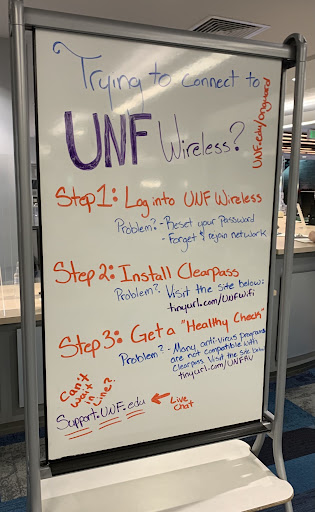 Trying to connect to
UNF Wireless?
UNF.edu/onguard
Step 1: Log into UNF Wireless
Problem? - Reset your password
- Forget & rejoin network
Step 2: Install Clearpass
Problem? Visit the site below:
tinyurl.com/UNFwifi
Step 3: Get a "Healthy Check"
Problem? - Many anti-virus programs
are not compatible with
Clearpass. Visit the site below
tinyurl.com/UNFAV
Can't
wait
in
line?
Support.UNF.edu
Live
Chat